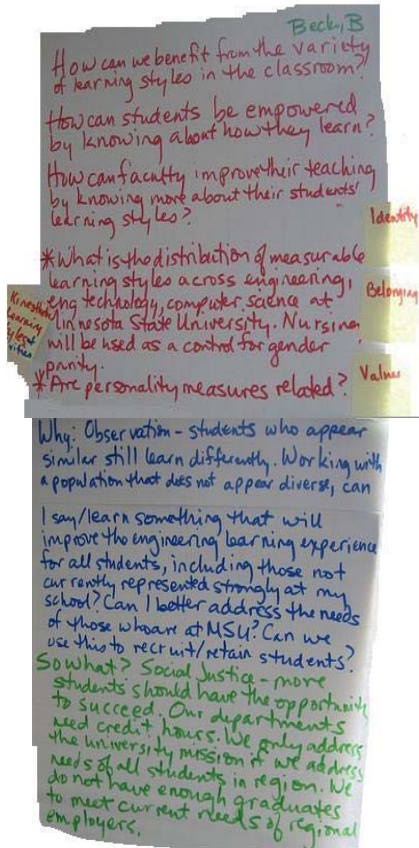 Beck, B
How can we benefit from the variety
of learning styles in the classroom?
How can students be empowered
by knowing about how they learn?
How can faculty improve their teaching
by knowing more about their students'
learning styles?
Identity
*What is the distribution of measurable
learning styles across engineering,
eng technology, computer science at
Minnesota State University. Nursing
will be used as a control for gender
parity.
Belonging
Kinesthetic
Learning
*Are personality measures related?
Values
Why: Observation - students who appear
similar still learn differently. Working with
a population that does not appear diverse, can
I say/learn something that will
improve the engineering learning experience
for all students, including those not
currently represented strongly at my
school? Can I better address the needs
of those who are at MSU? Can we
use this to recruit/retain students?
So what? Social Justice - more
students should have the opportunity
to succeed. Our departments
need credit hours. We only address
the university mission if we address
needs of all students in region. We
do not have enough graduates
to meet current needs of regional
employers.